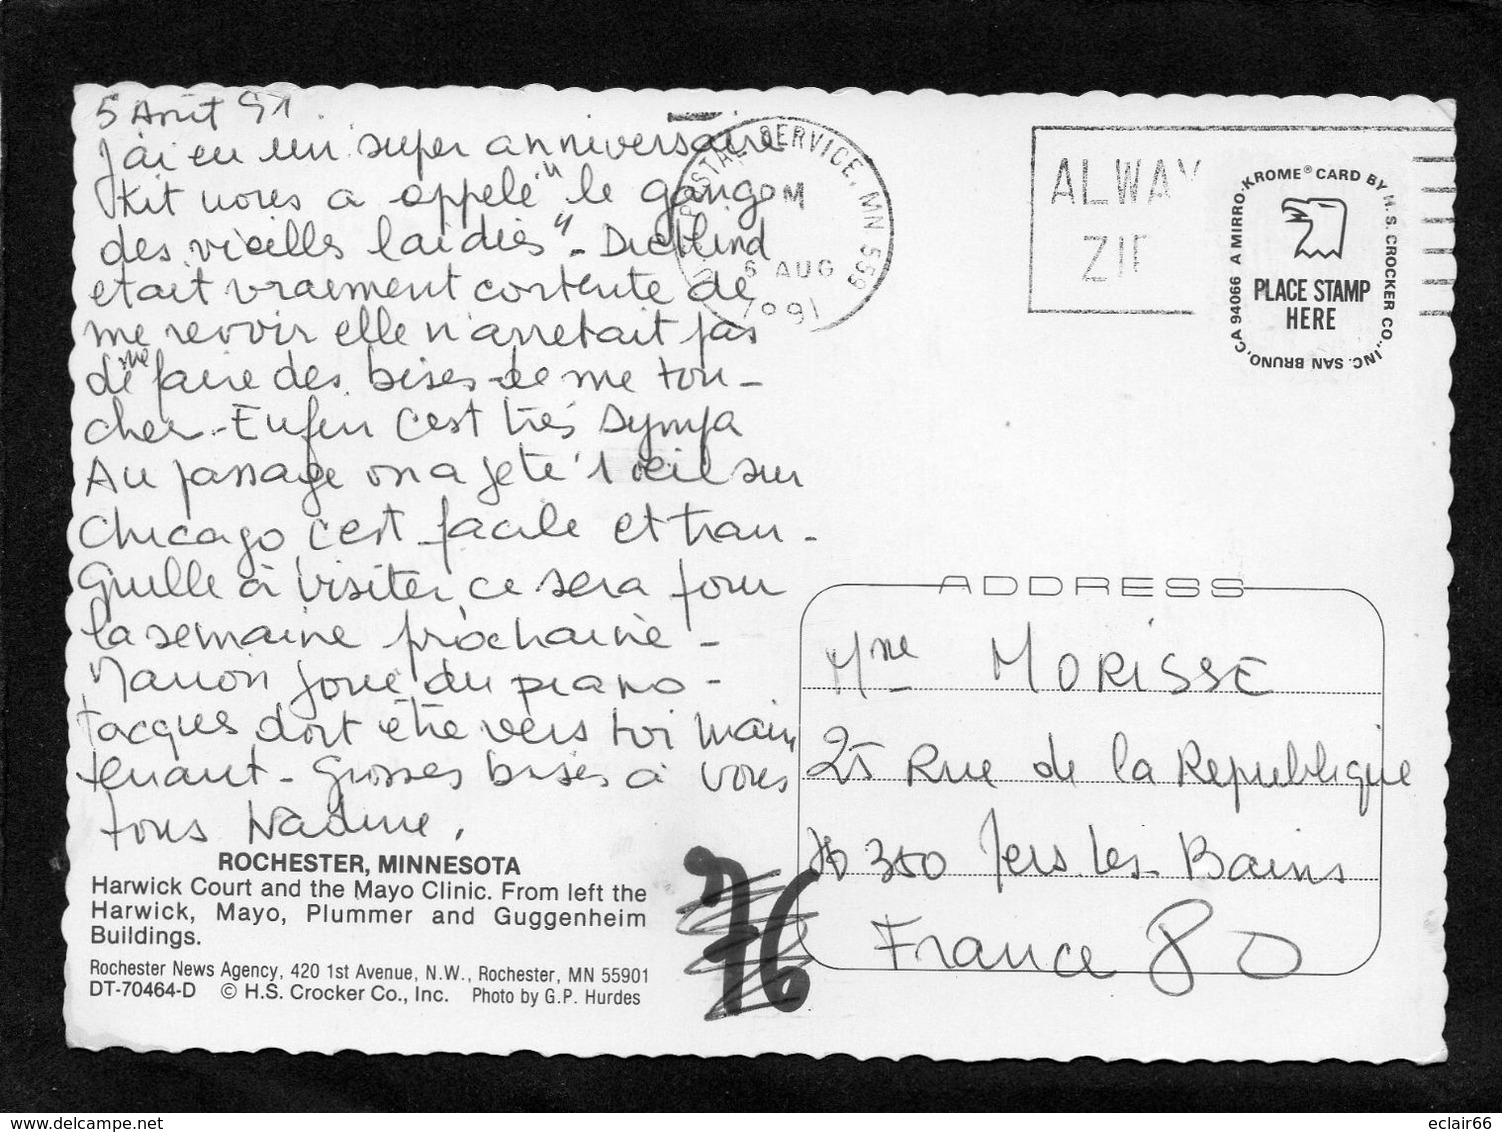 5 Août 91
J'ai eu un super anniversaire
Kit nous a appelé "le gang
des vieilles laidies" - Dietlind
etait vraiment contente de
me revoir elle n'arretait pas
de me faire des bises - de me tou-
cher - Enfin c'est très sympa
Au passage on a jeté 1 oeil sur
Chicago c'est facile et tran-
quille à visiter, ce sera pour
la semaine prochaine -
Manon joue du piano -
Jacques doit être vers toi main
tenant - Grosses bises à vous
tous Nadine.
ROCHESTER, MINNESOTA
Harwick Court and the Mayo Clinic. From left the
Harwick, Mayo, Plummer and Guggenheim
Buildings.
Rochester News Agency, 420 1st Avenue, N.W., Rochester, MN 55901
DT-70464-D © H.S. Crocker Co., Inc. Photo by G.P. Hurdes
POSTAL SERVICE, MN 559
PM
6 AUG
1991
ALWAY
ZIP
A MIRRO-KROME® CARD BY H.S. CROCKER CO., INC. SAN BRUNO, CA 94066
PLACE STAMP
HERE
ADDRESS
Mme MORISSE
25 Rue de la Republique
350 les Bains
France 80
76
eclair66